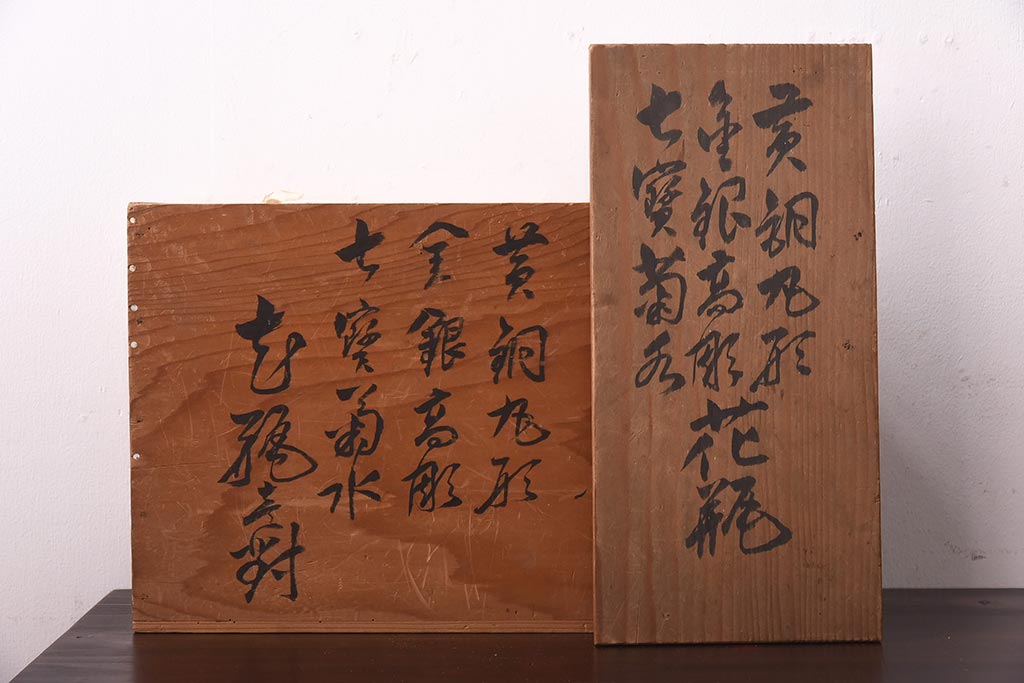 黄銅丸形
金銀高彫
七寶菊水
花瓶壱對
黄銅丸形
金銀高彫
七寶菊水
花瓶